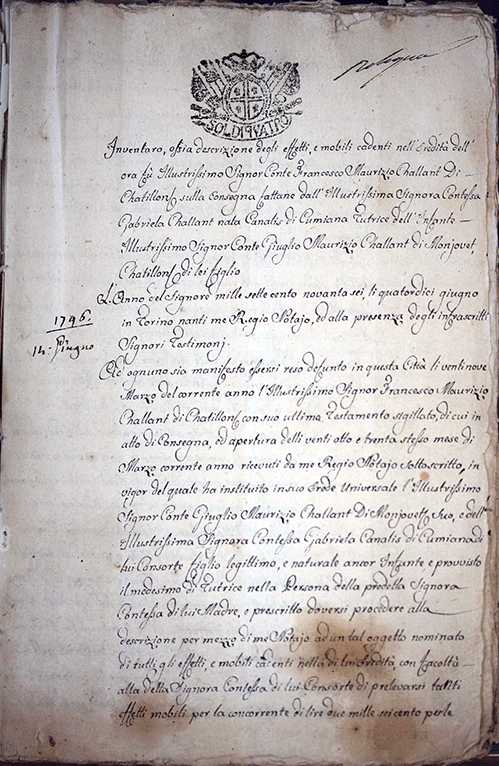 SOLDI QVATRO
Inventaro, ossia descrizione degli effetti, e mobili cadenti nell'Eredità dell'
ora fù Illustrissimo Signor Conte Francesco Maurizio Challant Di
Chatillon sulla Consegna fattane dall'Illustrissima Signora Contessa
Gabriela Challant nata Canalis di Cumiana Tutrice dell'Infante
Illustrissimo Signor Conte Giuglio Maurizio Challant di Monjovet,
Chatillon di lei figlio
L'Anno del Signore mille sette cento novanta sei, li quatordici giugno
1796.
in Torino nanti me Regio Notajo, ed alla presenza degli infrascritti
14. Giugno
Signori Testimonj.
Ad ognuno sia manifesto essersi reso defunto in questa Città li ventinove
Marzo del corrente anno l'Illustrissimo Signor Francesco Maurizio
Challant di Chatillon con suo ultimo Testamento sigillato, di cui in
atto di Consegna, ed apertura delli venti otto e trenta stesso mese di
Marzo corrente anno ricevuti da me Regio Notajo sottoscritto, in
vigor del quale ha instituito in suo Erede Universale l'Illustrissimo
Signor Conte Giuglio Maurizio Challant Di Monjovet suo, e dell'
Illustrissima Signora Contessa Gabriela Canalis di Cumiana di
lui Consorte figlio legittimo, e naturale ancor Infante e provvisto
il medesimo di Tutrice nella Persona della predetta Signora
Contessa di lui Madre, e prescritto doversi procedere alla
descrizione per mezzo di me Notajo ad un tal oggetto nominato
di tutti gli effetti, e mobili cadenti nella di lui Eredità, con facoltà
alla detta Signora Contessa di lui Consorte di prelevarsi tanti
effetti mobili per la concorrente di lire due mille seicento per le